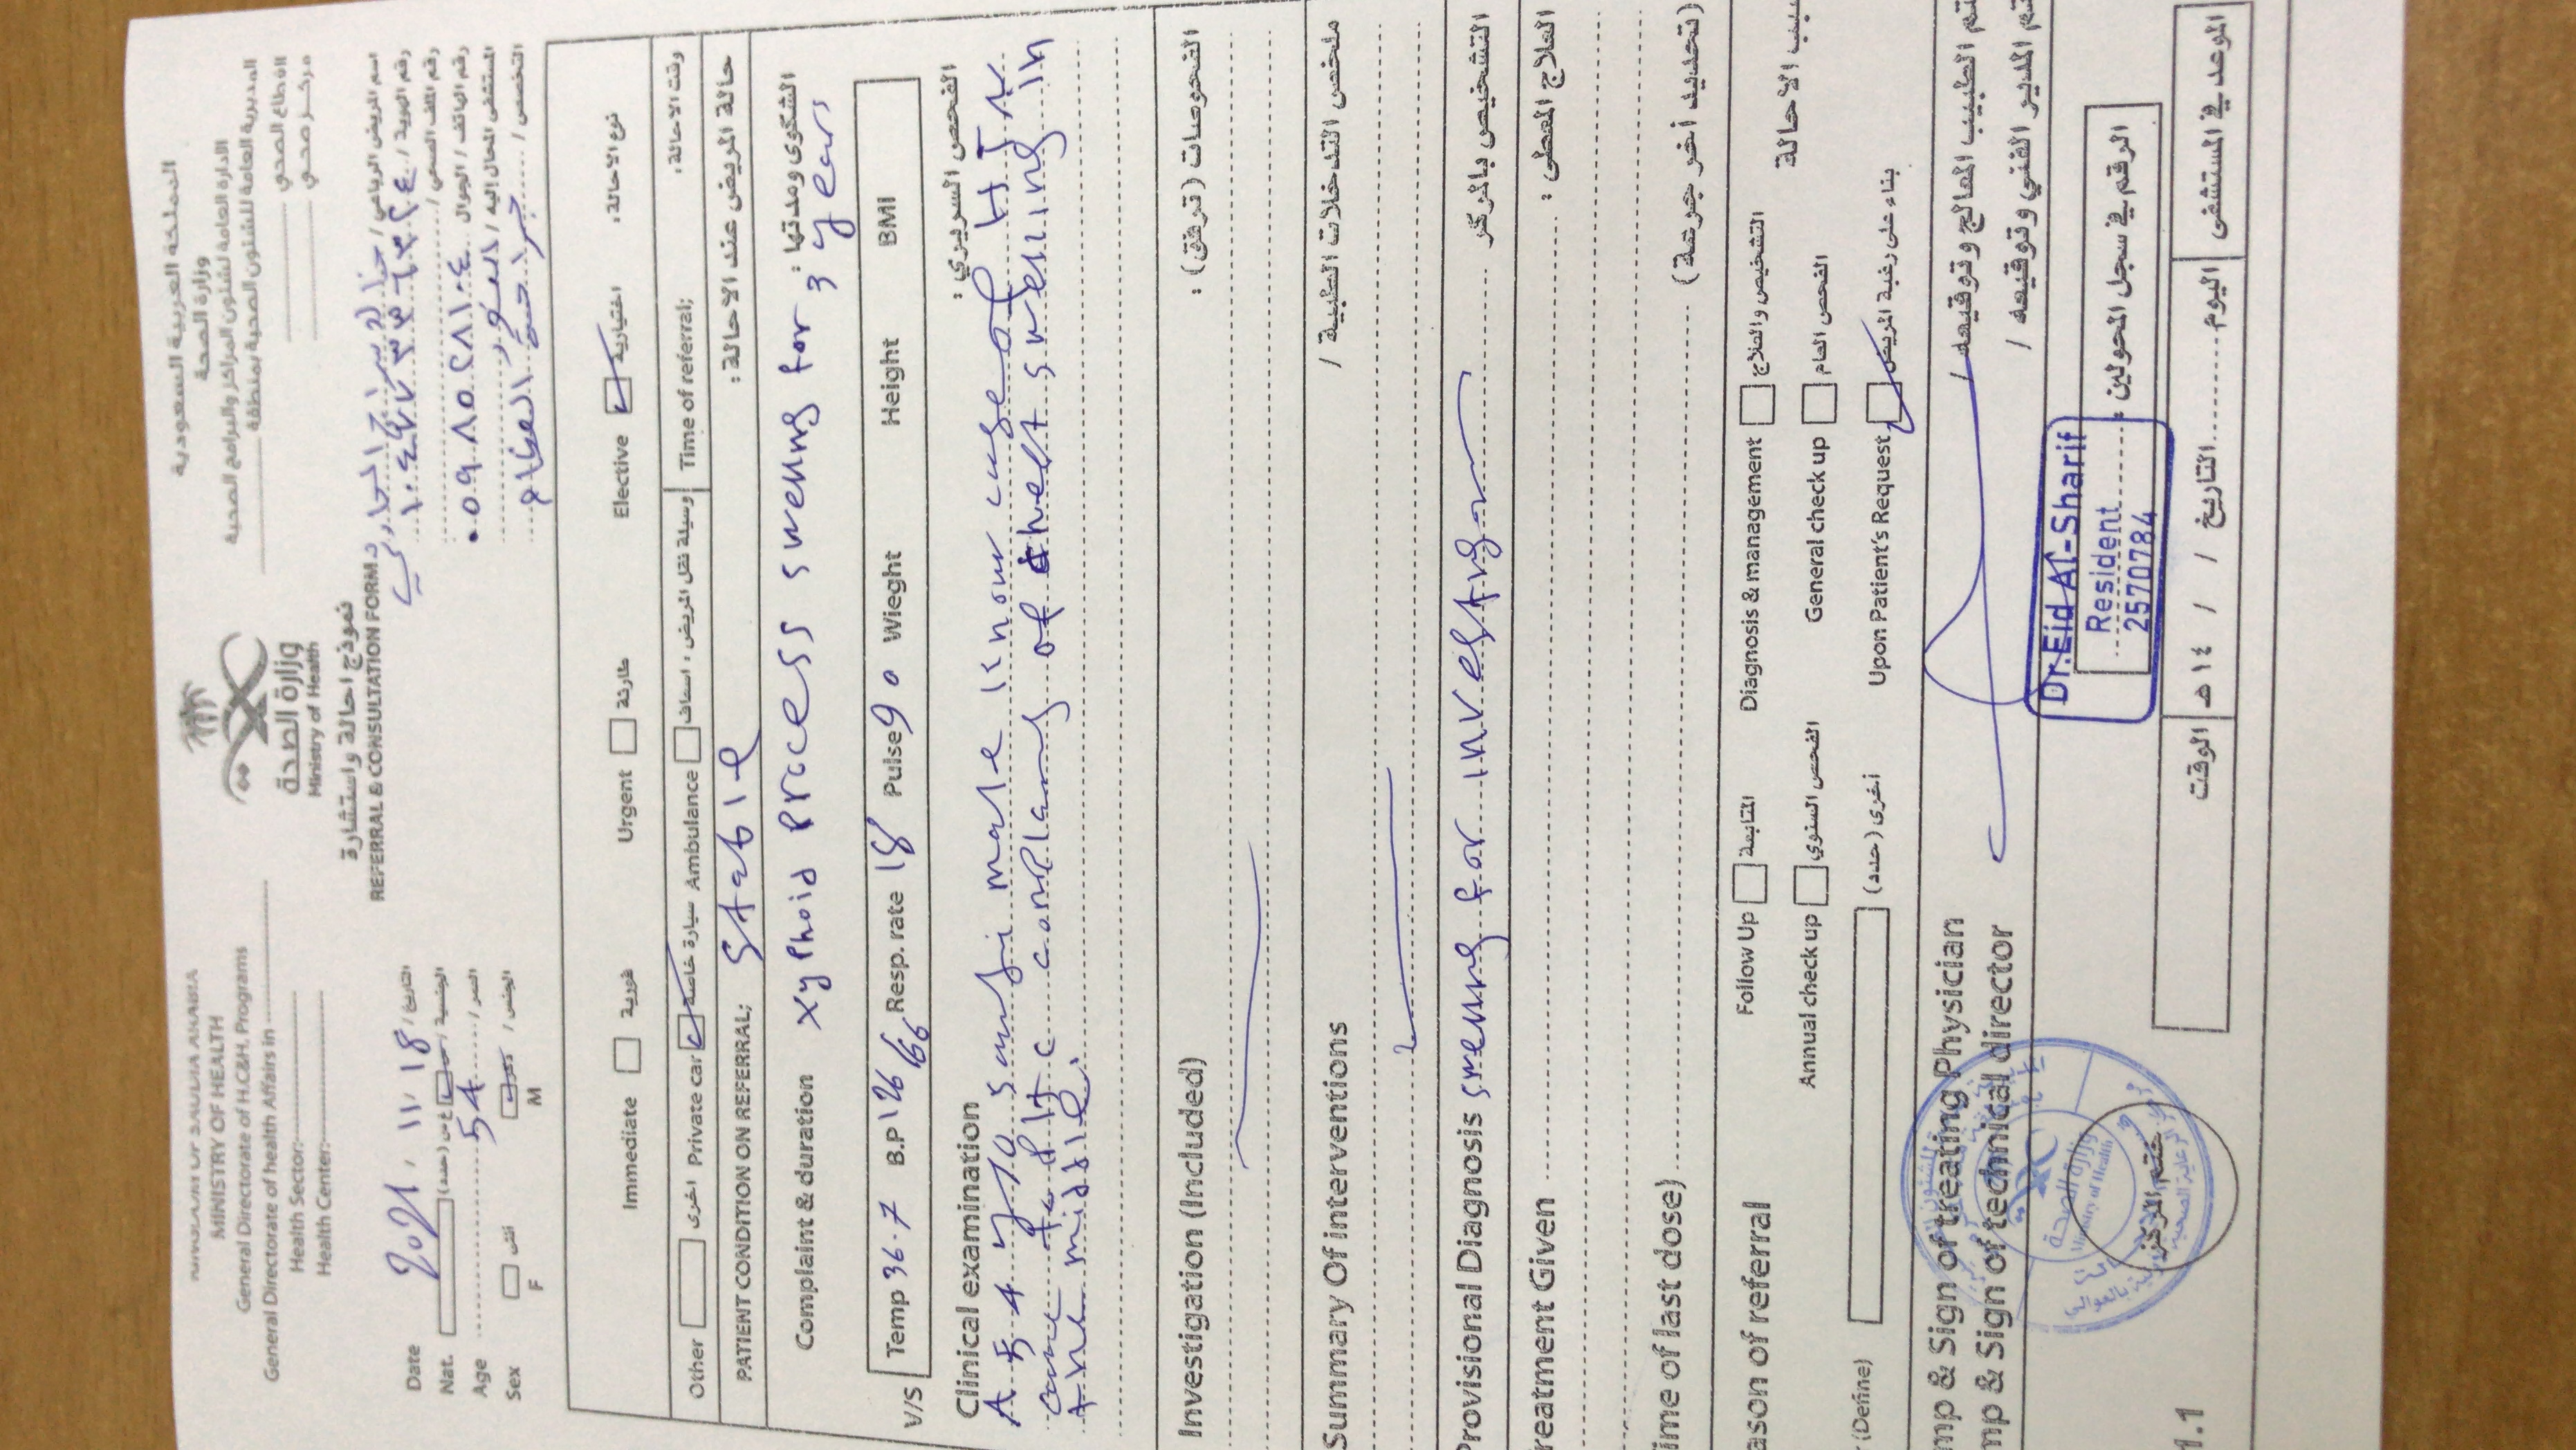 KINGDOM OF SAUDIA ARABIA
MINISTRY OF HEALTH
General Directorate of H.C&H. Programs
General Directorate of health Affairs in
Health Sector:
Health Center:
وزارة الصحة
Ministry of Health
المملكة العربية السعودية
وزارة الصحة
الادارة العامة لشئون المراكز والبرامج الصحية
المديرية العامة للشئون الصحية بمنطقة
القطاع الصحي
مركز صحي
نموذج احالة واستشارة
REFERRAL & CONSULTATION FORM
اسم المريض الرباعي / خالد سراج الحارثي
رقم الهوية /
رقم الملف الصحي /
رقم الهاتف / الجوال ٠٥٩٨٥٢٨١٠٤
المستشفى المحال إليه /
التخصص / جراحة العظام
Date 2021 / 11 / 18 التاريخ /
Nat. (حدد) غ س س الجنسية /
Age 54 العمر /
Sex أنثى ذكر الجنس /
F M
Immediate فورية Urgent طارئة Elective اختيارية نوع الاحالة:
Other اخرى Private car سيارة خاصة Ambulance اسعاف وسيلة نقل المريض : Time of referral; وقت الاحالة:
PATIENT CONDITION ON REFERRAL; stable حالة المريض عند الاحالة :
Complaint & duration xyphoid Process swelling for 3 years الشكوى ومدتها :
V/S Temp 36.7 B.P 126/66 Resp. rate 18 Pulse 90 Wieght Height BMI
Clinical examination الفحص السريري :
A 54 y/o saudi male know case of HTN
came to PHC complaing of chest swelling in
the middle.
Investigation (Included) الفحوصات (ترفق) :
Summary Of interventions ملخص التدخلات الطبية /
Provisional Diagnosis swelling for التشخيص بالمركز
reatment Given العلاج المعطى :
ime of last dose) (تحديد أخر جرعة)
ason of referral Follow Up المتابعة Diagnosis & management التشخيص والعلاج سبب الاحالة
Annual check up الفحص السنوي General check up الفحص العام
(Define) أخرى (حدد) Upon Patient's Request بناء على رغبة المريض
mp & Sign of treating Physician تم الطبيب المعالج وتوقيعه /
mp & Sign of technical director تم المدير الفني وتوقيعه /
Dr.Eid Al-Sharif
Resident
2570784
الرقم في سجل المحولين :
وزارة الصحة
Ministry of Health
ختم المركز
1.1
الموعد في المستشفى اليوم التاريخ / / ١٤ هـ الوقت